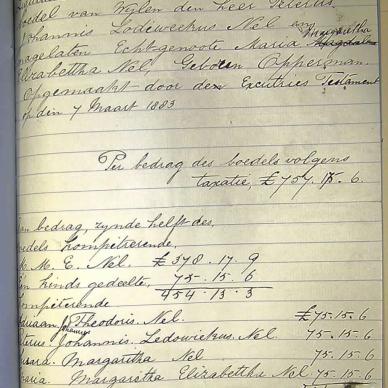 boedel van Wylen den Heer Petrus
Johannis Lodeweekus Nel en
nagelaten Echtgenoote Maria Margaretha
Elizabettha Nel, Geboren Opperman.
Opgemaakt door den Excutries Testament
op den 7 Maart 1883
Per bedrag des boedels volgens
taxatie, £757.15.6.
bedrag, zynde helft des,
boedels kompeteerende,
M. M. E. Nel. £378.17.9
kinds gedeelte, 75.15.6
454.13.3
Theodoris Nel. £75.15.6
Petrus Johannis Ledowiekus Nel. 75.15.6
Margaritha Nel 75.15.6
Maria Margaretha Elizabettha Nel 75.15.6